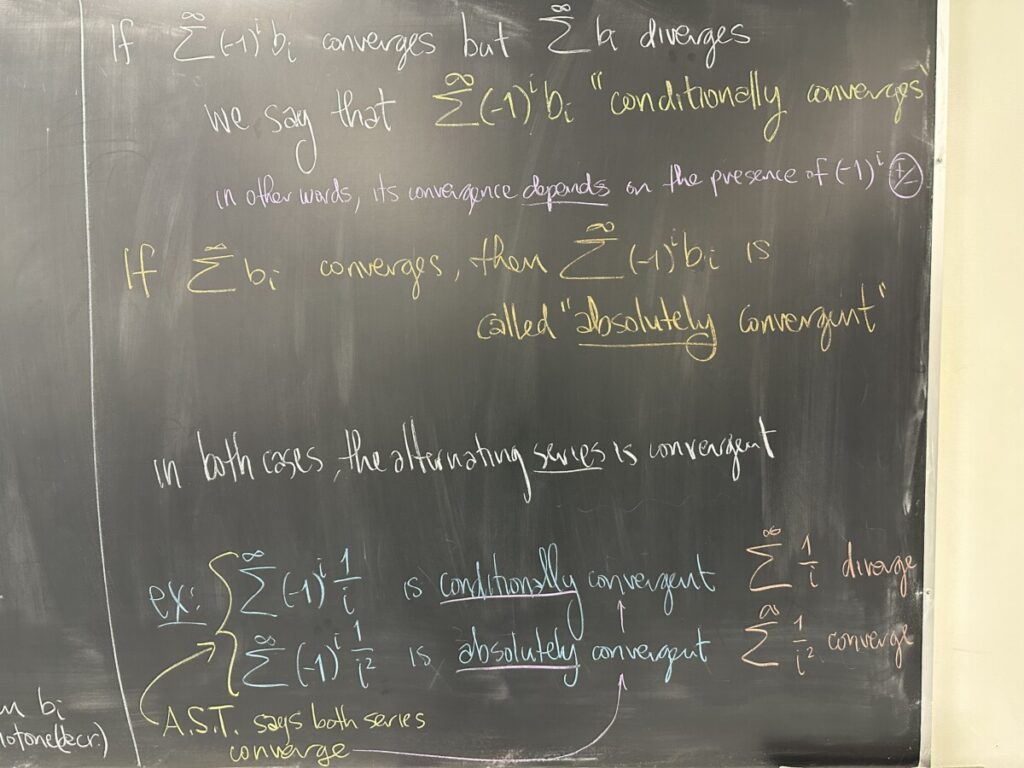 If ∑^∞ (-1)^i b_i converges but ∑^∞ b_i diverges
we say that ∑^∞ (-1)^i b_i "conditionally converges"
in other words, its convergence depends on the presence of (-1)^i +/-
If ∑^∞ b_i converges, then ∑^∞ (-1)^i b_i is
called "absolutely convergent"
in both cases, the alternating series is convergent
ex: ∑^∞ (-1)^i 1/i is conditionally convergent ∑^∞ 1/i diverge
∑^∞ (-1)^i 1/i^2 is absolutely convergent ∑^∞ 1/i^2 converge
A.S.T. says both series
converge
b_i
decr.)